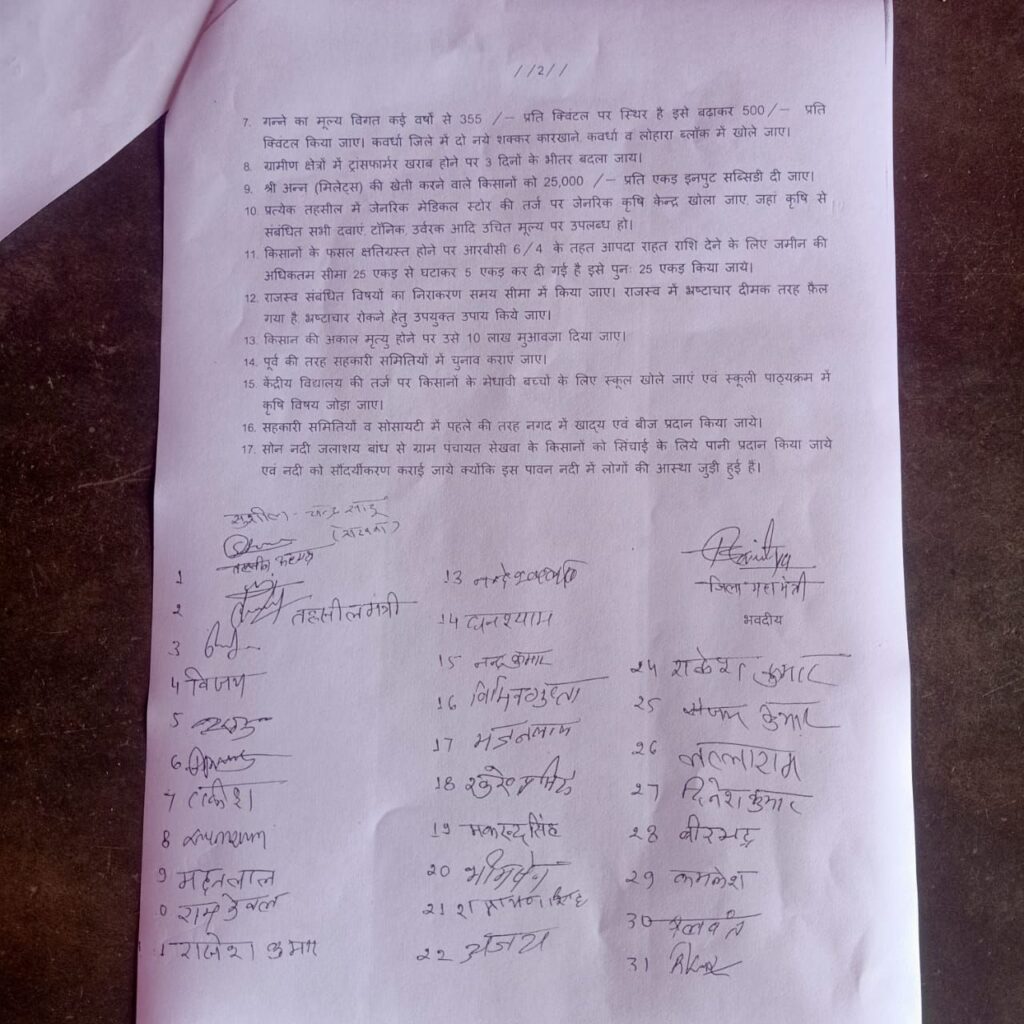 //2//
7. गन्ने का मूल्य विगत कई वर्षों से 355 /– प्रति क्विंटल पर स्थिर है इसे बढाकर 500/– प्रति
क्विंटल किया जाए। कवर्धा जिले में दो नये शक्कर कारखाने कवर्धा व लोहारा ब्लॉक में खोले जाए।
8. ग्रामीण क्षेत्रों में ट्रांसफार्मर खराब होने पर 3 दिनों के भीतर बदला जाय।
9. श्री अन्न (मिलेट्स) की खेती करने वाले किसानों को 25,000 /– प्रति एकड़ इनपुट सब्सिडी दी जाए।
10. प्रत्येक तहसील में जेनरिक मेडिकल स्टोर की तर्ज पर जेनरिक कृषि केन्द्र खोला जाए जहां कृषि से
संबंधित सभी दवाएं टॉनिक उर्वरक आदि उचित मूल्य पर उपलब्ध हो।
11. किसानों के फसल क्षतिग्रस्त होने पर आरबीसी 6/4 के तहत आपदा राहत राशि देने के लिए जमीन की
अधिकतम सीमा 25 एकड़ से घटाकर 5 एकड़ कर दी गई है इसे पुनः 25 एकड़ किया जाये।
12. राजस्व संबंधित विषयों का निराकरण समय सीमा में किया जाए। राजस्व में भ्रष्टाचार दीमक तरह फ़ैल
गया है भ्रष्टाचार रोकने हेतु उपयुक्त उपाय किये जाए।
13. किसान की अकाल मृत्यु होने पर उसे 10 लाख मुआवजा दिया जाए।
14. पूर्व की तरह सहकारी समितियों में चुनाव कराएं जाए।
15. केंद्रीय विद्यालय की तर्ज पर किसानों के मेधावी बच्चों के लिए स्कूल खोले जाएं एवं स्कूली पाठ्यक्रम में
कृषि विषय जोड़ा जाए।
16. सहकारी समितियों व सोसायटी में पहले की तरह नगद में खाद्य एवं बीज प्रदान किया जाये।
17. सोन नदी जलाशय बांध से ग्राम पंचायत सेखवा के किसानों को सिंचाई के लिये पानी प्रदान किया जाये
एवं नदी को सौंदर्यीकरण कराई जाये क्योंकि इस पावन नदी में लोगों की आस्था जुड़ी हुई है।
सुशीला
जिला महामंत्री
भवदीय
1
2 तहसील मंत्री
3
4 विजय
5
6
7
8
9 मदनलाल
0 राम केवल
1 राजेश कुमार
13
14 घनश्याम
15 नन्द कुमार
16
17
18
19 मकरन्द सिंह
20 भीमसेन
21
22 अजय
24 राकेश कुमार
25 कुमार
26 लल्लाराम
27 दिनेश कुमार
28 वीरभद्र
29 कमलेश
30 बलवंत
31